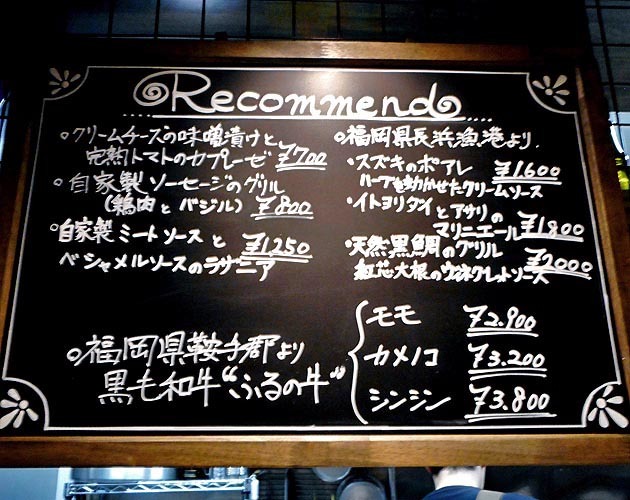 Recommend
○クリームチーズの味噌漬けと
完熟トマトのカプレーゼ ¥700
○自家製ソーセージのグリル
(鶏肉とバジル) ¥800
○自家製ミートソースと ¥1,250
ベシャメルソースのラザニア
○福岡県長浜漁港より.
・スズキのポアレ ¥1,600
ハーブを効かせたクリームソース
・イトヨリダイとアサリの
マリニエール ¥1800
・天然黒鯛のグリル ¥2000
紅芯大根のヴィネグレットソース
○福岡県鞍手郡より
黒毛和牛“ふるの牛”
モモ ¥2.900
カメノコ ¥3.200
シンシン ¥3.800